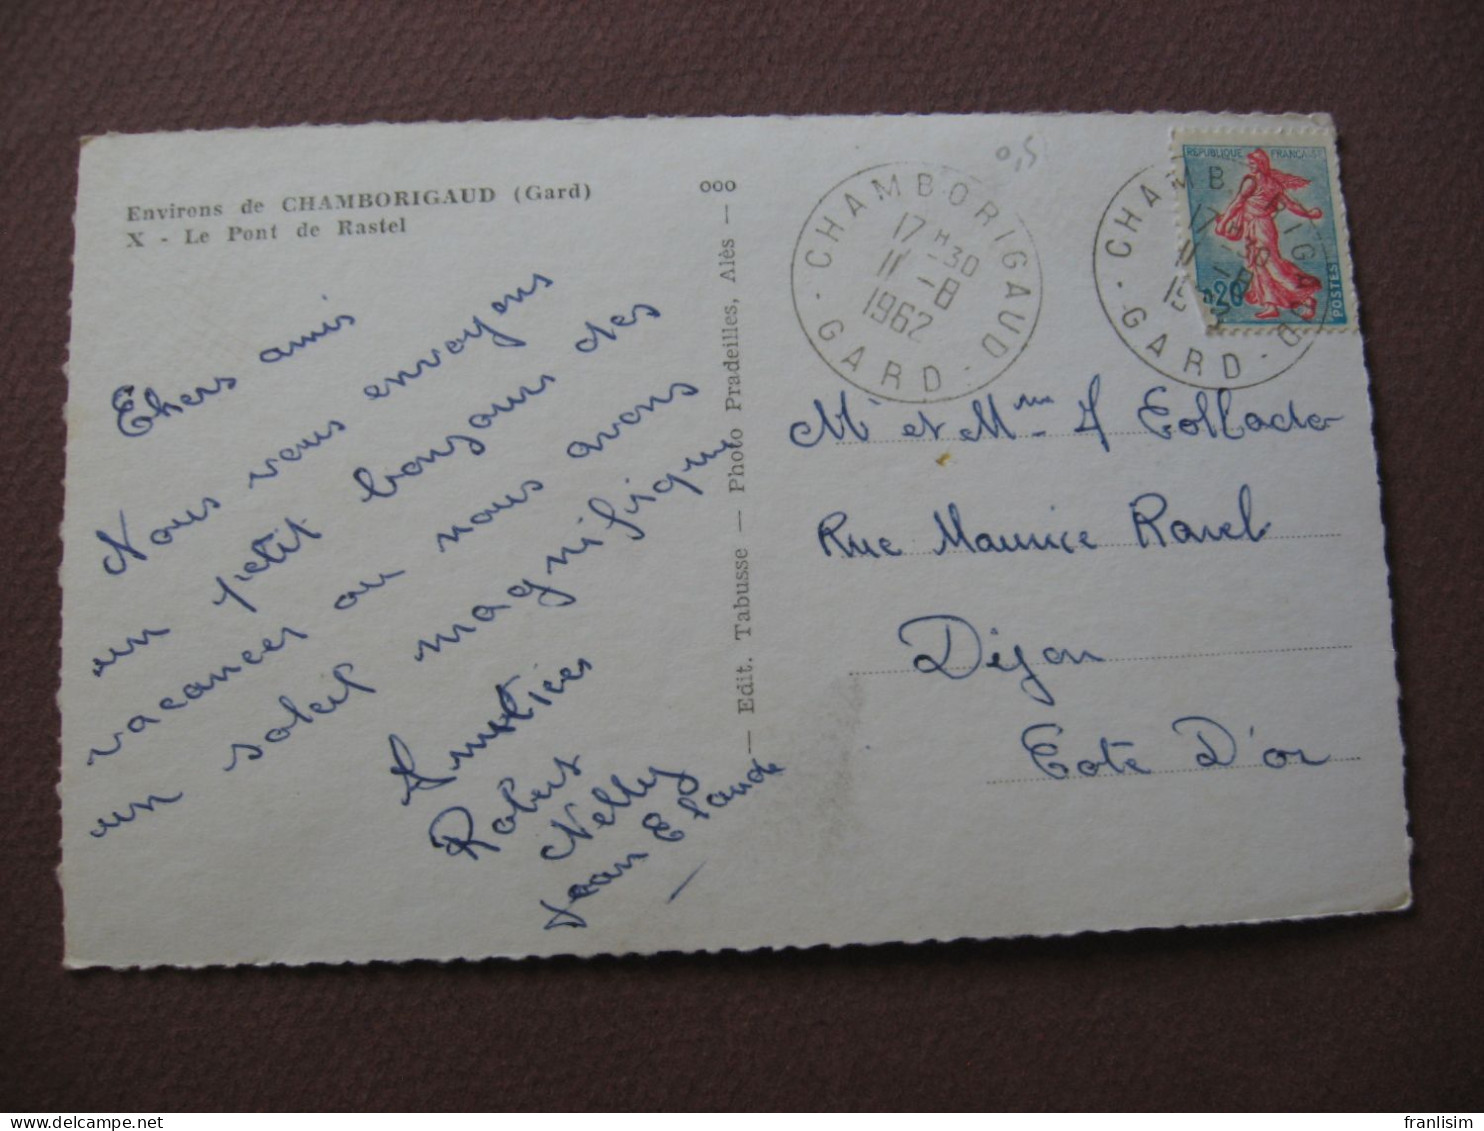 Environs de CHAMBORIGAUD (Gard)
X - Le Pont de Rastel
Chers amis
Nous vous envoyons
un petit bonjour des
vacances ou nous avons
un soleil magnifique
Amitiés
Robert
Nelly
Jean Claude
— Edit. Tabusse — Photo Pradeilles, Alès —
000
0,5
CHAMBORIGAUD
17 H 30
11 - 8
1962
· GARD ·
CHAMBORIGAUD
17 H 30
11 - 8
· GARD ·
REPUBLIQUE FRANÇAISE
0,20
POSTES
Mr et Mme A Collado
Rue Maurice Ravel
Dijon
Cote D'or
franlisim